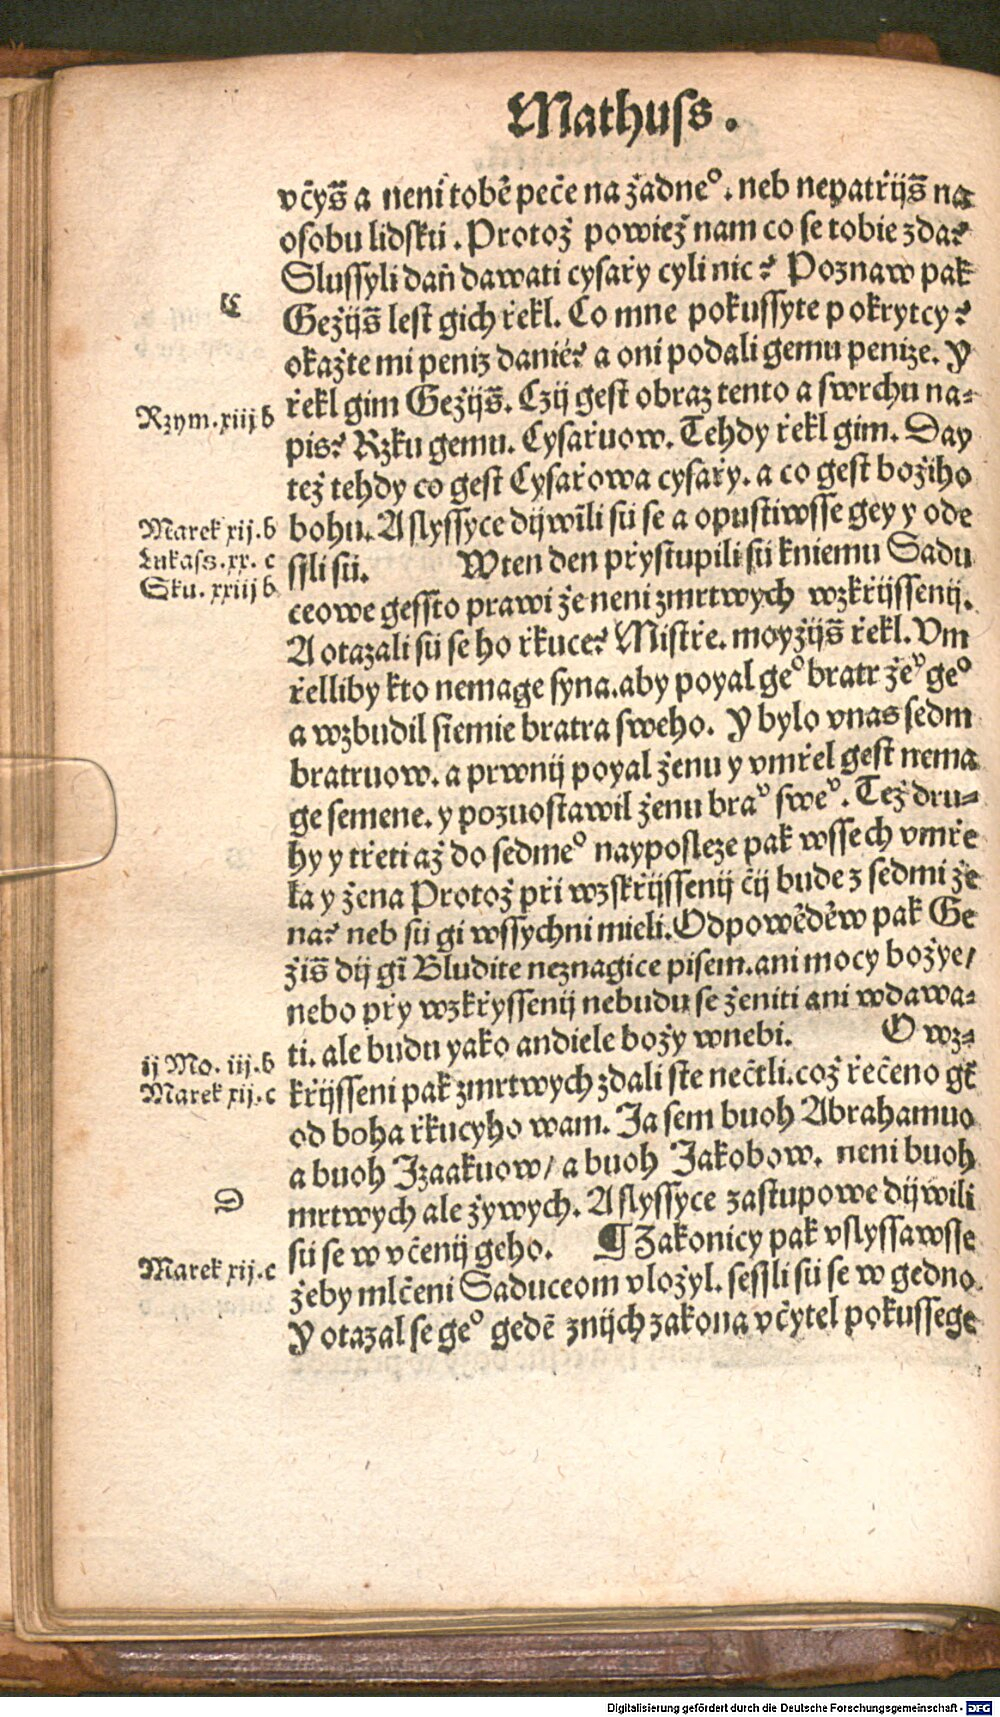 Mathuss.
včyš a neni tobě peče na žadneº. neb nepatřijš na
osobu lidsků. Protož powiež nam co se tobie zda?
Slussyli daň dawati cysařy cyli nic? Poznaw pak
C
Gežijš lest gich řekl. Co mne pokussyte pokrytcy?
okažte mi peniz danie? a oni podali gemu penize. Y
řekl gim Gežijš. Czij gest obraz tento a swrchu na=
Rzym.xiij b
pis? Rzku gemu. Cysařuow. Tehdy řekl gim. Day
tež tehdy co gest Cysařowa cysařy. a co gest božiho
Marek xij.b
bohu. A slyssyce dijwili sů se a opustiwsse gey y ode
Lukass.xx. c
ssli sů. W ten den přystupili sů kniemu Sadu
Sku. xxiij b
ceowe gessto prawi že neni zmrtwych wzkřijssenij.
A otazali sů se ho řkuce? Mistře. moyžijš řekl. Vm
řelliby kto nemage syna. aby poyal geº bratr žeᵛ geº
a wzbudil siemie bratra sweho. Y bylo vnas sedm
bratruow. a prwnij poyal ženu y vmřel gest nema
ge semene. y pozuostawil ženu braᵛ sweᵛ. Tež dru=
hy y třeti až do sedmeº nayposleze pak wssech vmře
la y žena Protož při wzskřijssenij čij bude z sedmi že
na? neb sů gi wssychni mieli. Odpowěděw pak Ge
žiš dij gī Bludite neznagice pisem. ani mocy božye/
nebo přy wzkřyssenij nebudu se ženiti ani wdawa=
ti. ale budu yako andiele božy wnebi. O wz=
ij Mo. iij.b
křijsseni pak zmrtwych zdali ste nečtli. což řečeno gt̄
Marek xij.c
od boha řkucyho wam. Ja sem buoh Abrahamuo
a buoh Jzaakuow/ a buoh Jakobow. neni buoh
D
mrtwych ale žywych. A slyssyce zastupowe dijwili
sů se w včenij geho. ¶ Zakonicy pak vslyssawsse
Marek xij.c
žeby mlčeni Saduceom vložyl. sessli sů se w gedno.
Y otazal se geº gedē znijch zakona včytel pokussege
Digitalisierung gefördert durch die Deutsche Forschungsgemeinschaft - DFG